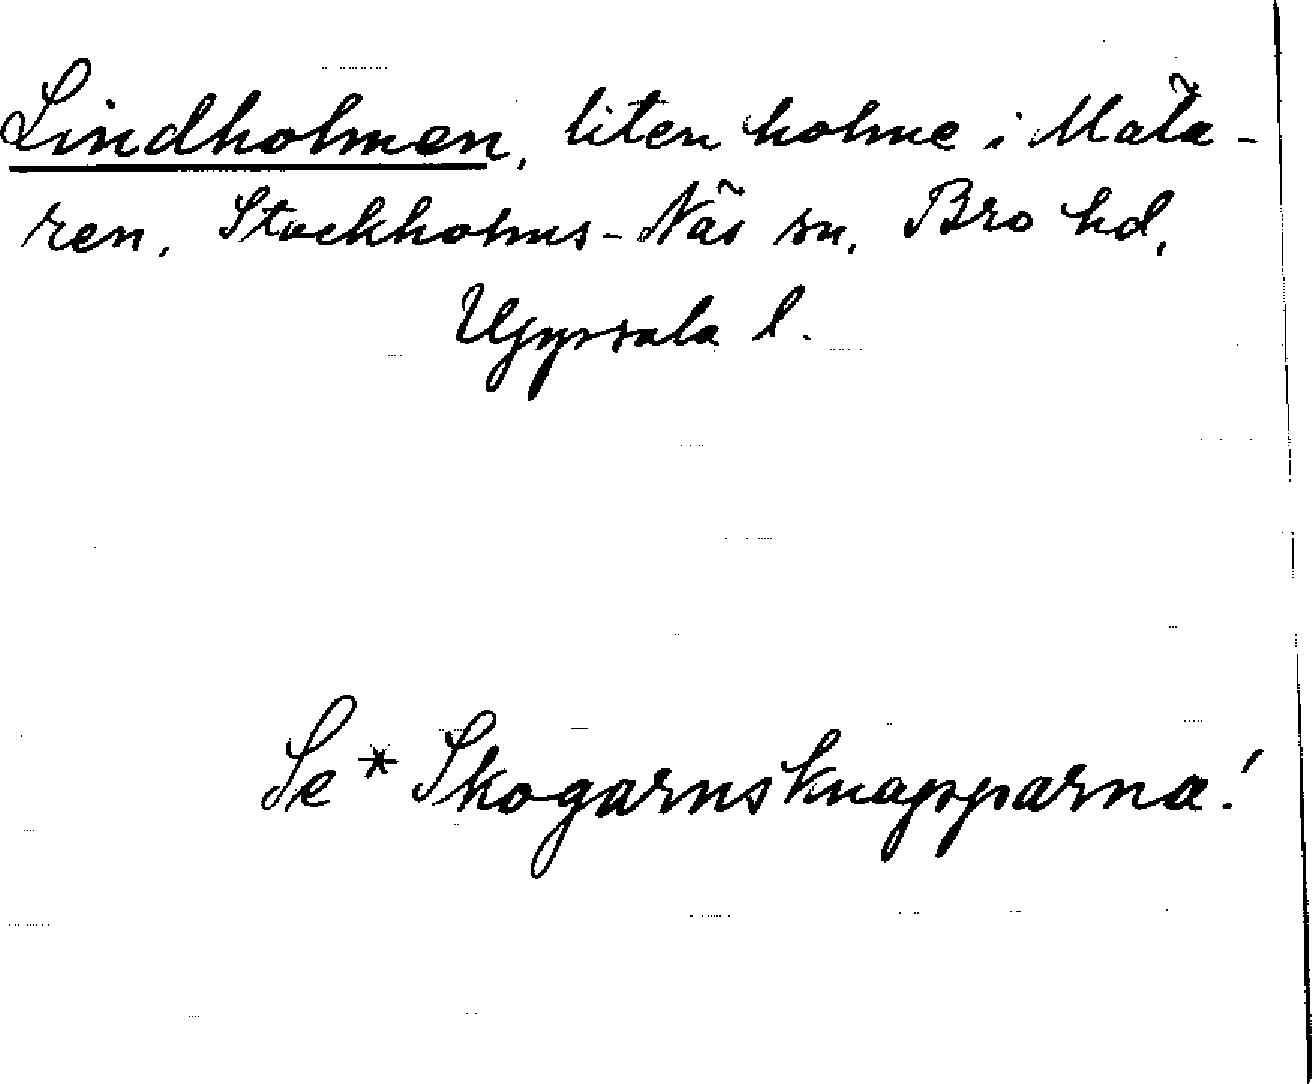 Lindholmen, liten holme i Mäla-
ren, Stockholms-Näs sn, Bro hd,
Uppsala l.
Se * Skogarnsknapparna!